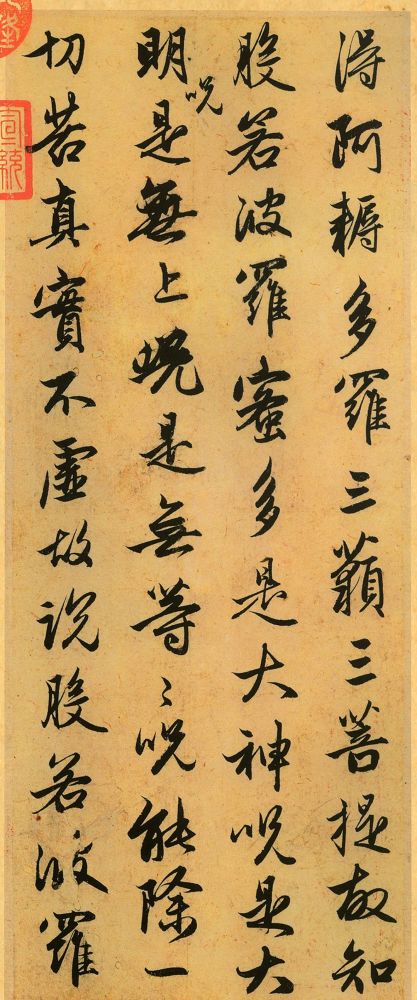 得阿耨多羅三藐三菩提故知
般若波羅蜜多是大神呪是大
明呪是無上呪是無等〻呪能除一
切苦真實不虛故説般若波羅